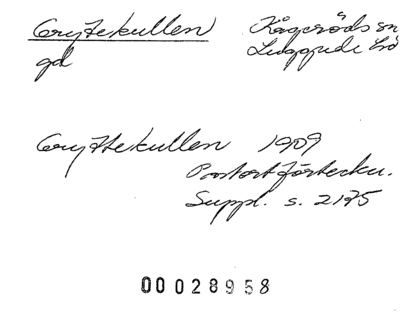 Grytekullen Kågeröds sn
gd Luggude hd
Gryttekullen 1909
Postortförteckn.
Suppl. s. 2135
00028958